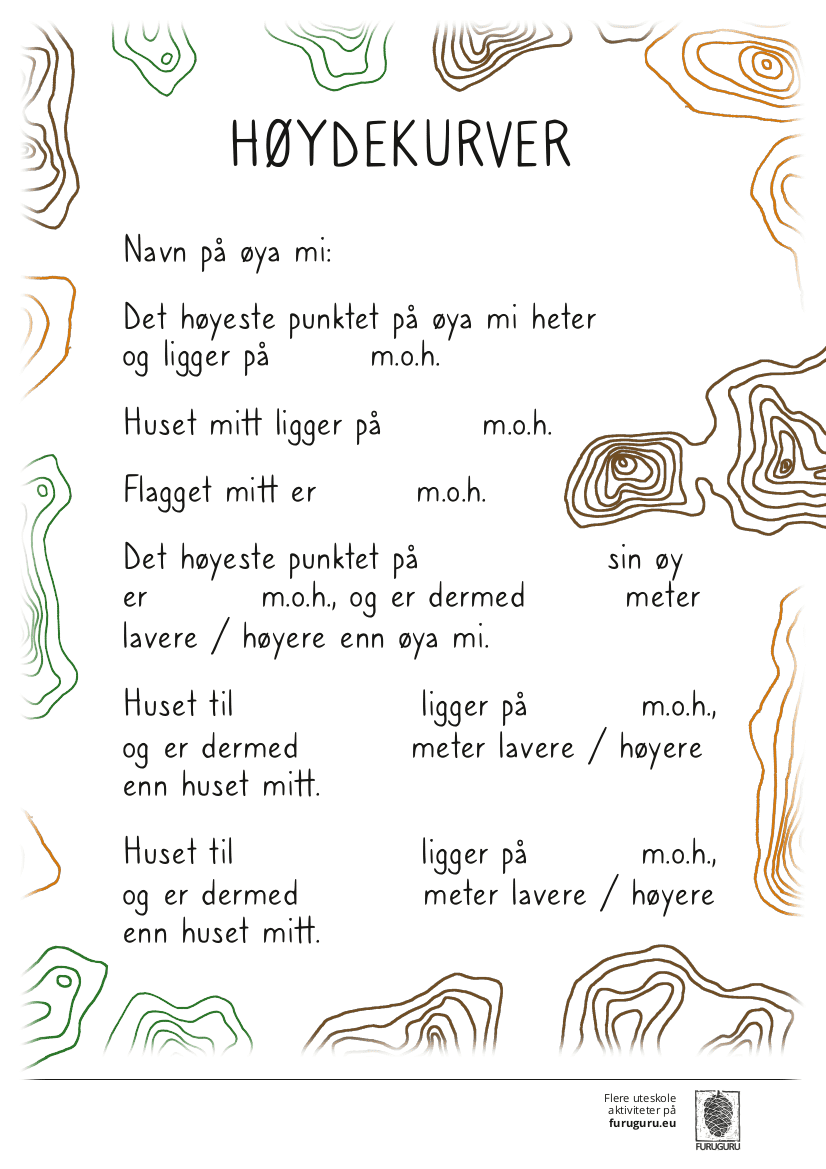 HØYDEKURVER
Navn på øya mi:
Det høyeste punktet på øya mi heter
og ligger på m.o.h.
Huset mitt ligger på m.o.h.
Flagget mitt er m.o.h.
Det høyeste punktet på sin øy
er m.o.h., og er dermed meter
lavere / høyere enn øya mi.
Huset til ligger på m.o.h.,
og er dermed meter lavere / høyere
enn huset mitt.
Huset til ligger på m.o.h.,
og er dermed meter lavere / høyere
enn huset mitt.
Flere uteskole
aktiviteter på
furuguru.eu
FURUGURU